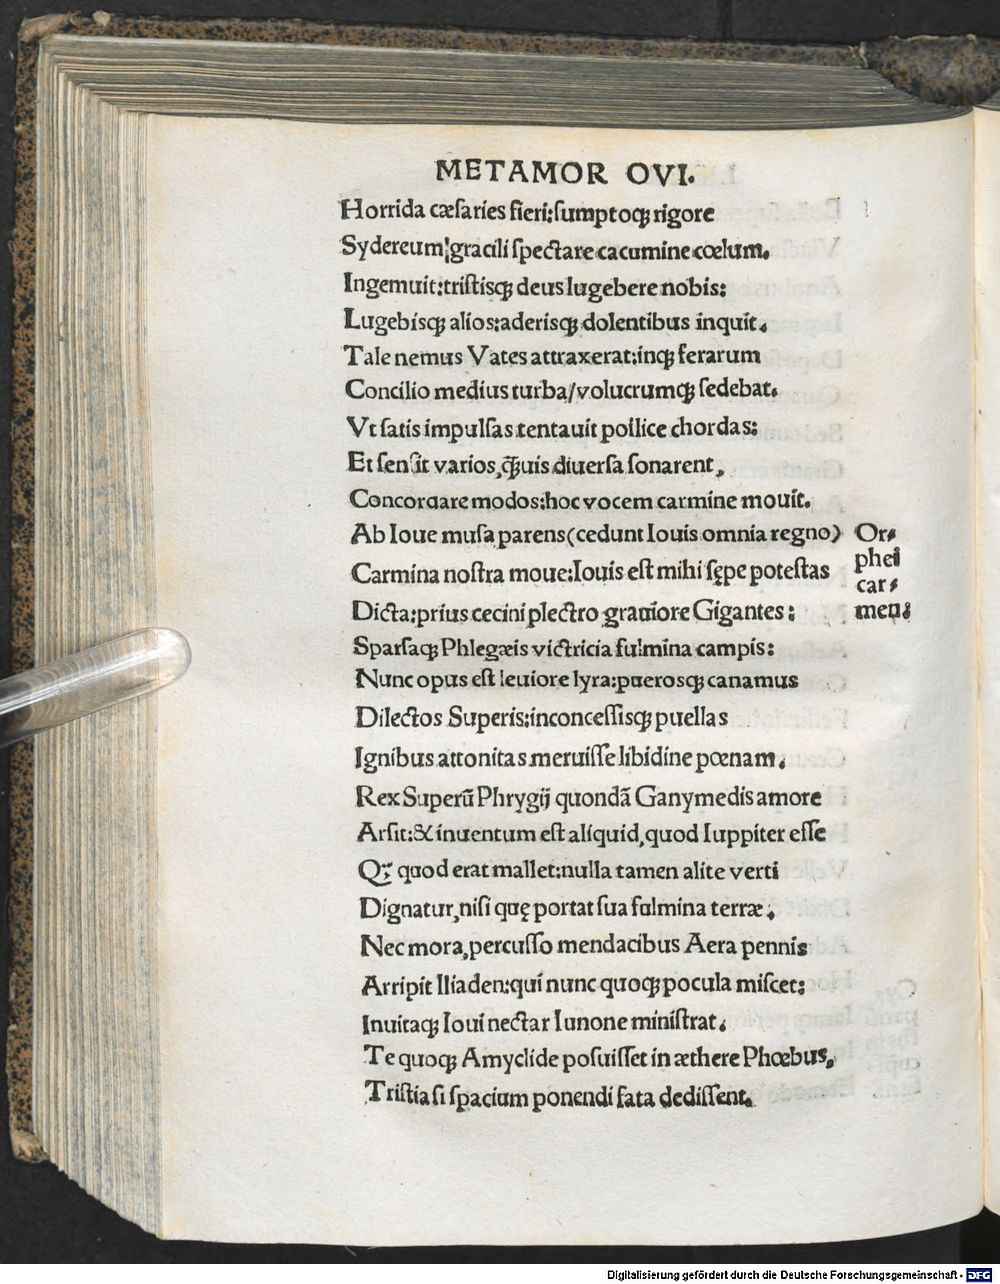 METAMOR OVI.
Horrida cæſaries fieri:ſumptoq; rigore
Sydereum!gracili ſpectare cacumine cœlum.
Ingemuit:triſtisq; deus lugebere nobis:
Lugebisq; alios:aderisq; dolentibus inquit.
Tale nemus Vates attraxerat:inq; ferarum
Concilio medius turba/volucrumq; ſedebat.
Vt ſatis impulſas tentauit pollice chordas:
Et ſenſit varios, q̃uis diuerſa ſonarent,
Concordare modos:hoc vocem carmine mouit.
Ab Ioue muſa parens(cedunt Iouis omnia regno)
Carmina noſtra moue:Iouis eſt mihi ſępe poteſtas
Dicta:prius cecini plectro grauiore Gigantes:
Orphei
car-
men:
Sparſaq; Phlegæis victricia fulmina campis:
Nunc opus eſt leuiore lyra:puerosq; canamus
Dilectos Superis:inconceſſisq; puellas
Ignibus attonitas meruiſſe libidine pœnam.
Rex Superũ Phrygij quondã Ganymedis amore
Arſit:& inuentum eſt aliquid,quod Iuppiter eſſe
Q; quod erat mallet:nulla tamen alite verti
Dignatur,niſi quę portat ſua fulmina terræ.
Nec mora,percuſſo mendacibus Aera pennis
Arripit Iliaden:qui nunc quoq; pocula miſcet:
Inuitaq; Ioui nectar Iunone miniſtrat.
Te quoq; Amyclide poſuiſſet in æthere Phœbus,
Triſtia ſi ſpacium ponendi fata dediſſent.
Digitalisierung gefördert durch die Deutsche Forschungsgemeinschaft - DFG